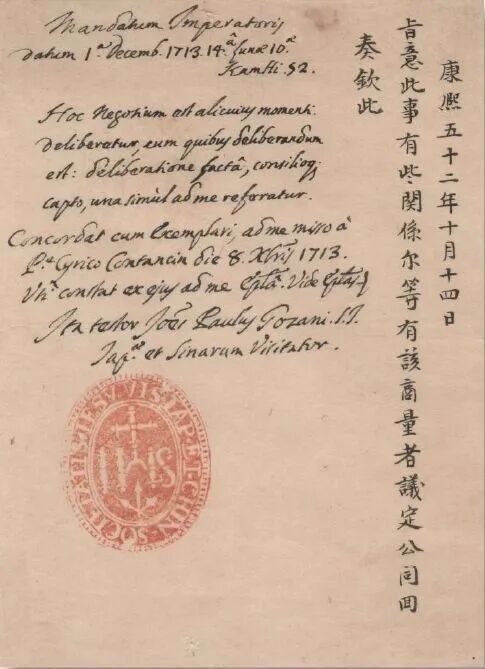 Mandatum Imperatoris
datum 1.ª Decemb. 1713. 14.ª Lunæ 10.ª
KamHi. 52.
Hoc Negotium est alicuius momenti.
deliberetur, cum quibus deliberandum
est: deliberatione factâ, consilioq;
capto, una simùl ad me referatur.
Concordat cum Exemplari, ad me misso à
P.e Cyrico Contancin die 8. Xbris 1713.
constat ex ejus ad me Eplâ. Vide
Ita testor Joes Paulus Gozani. S.J.
Jap.æ et Sinarum Visitator.
SOCIETATIS IESV VIS IAP ET CHIN
IHS
康熙五十二年十月十四日
旨意此事有些関係尔等有該商量者議定公同囬
奏欽此